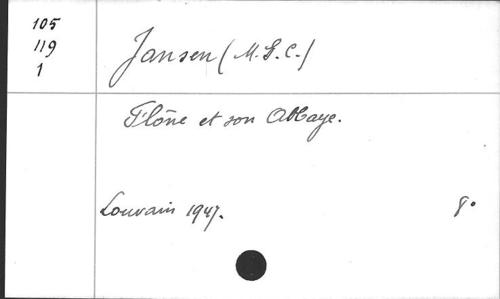 105
119
1
Jansen (M. G. C.)
Flône et son Abbaye.
Louvain 1947. 8°